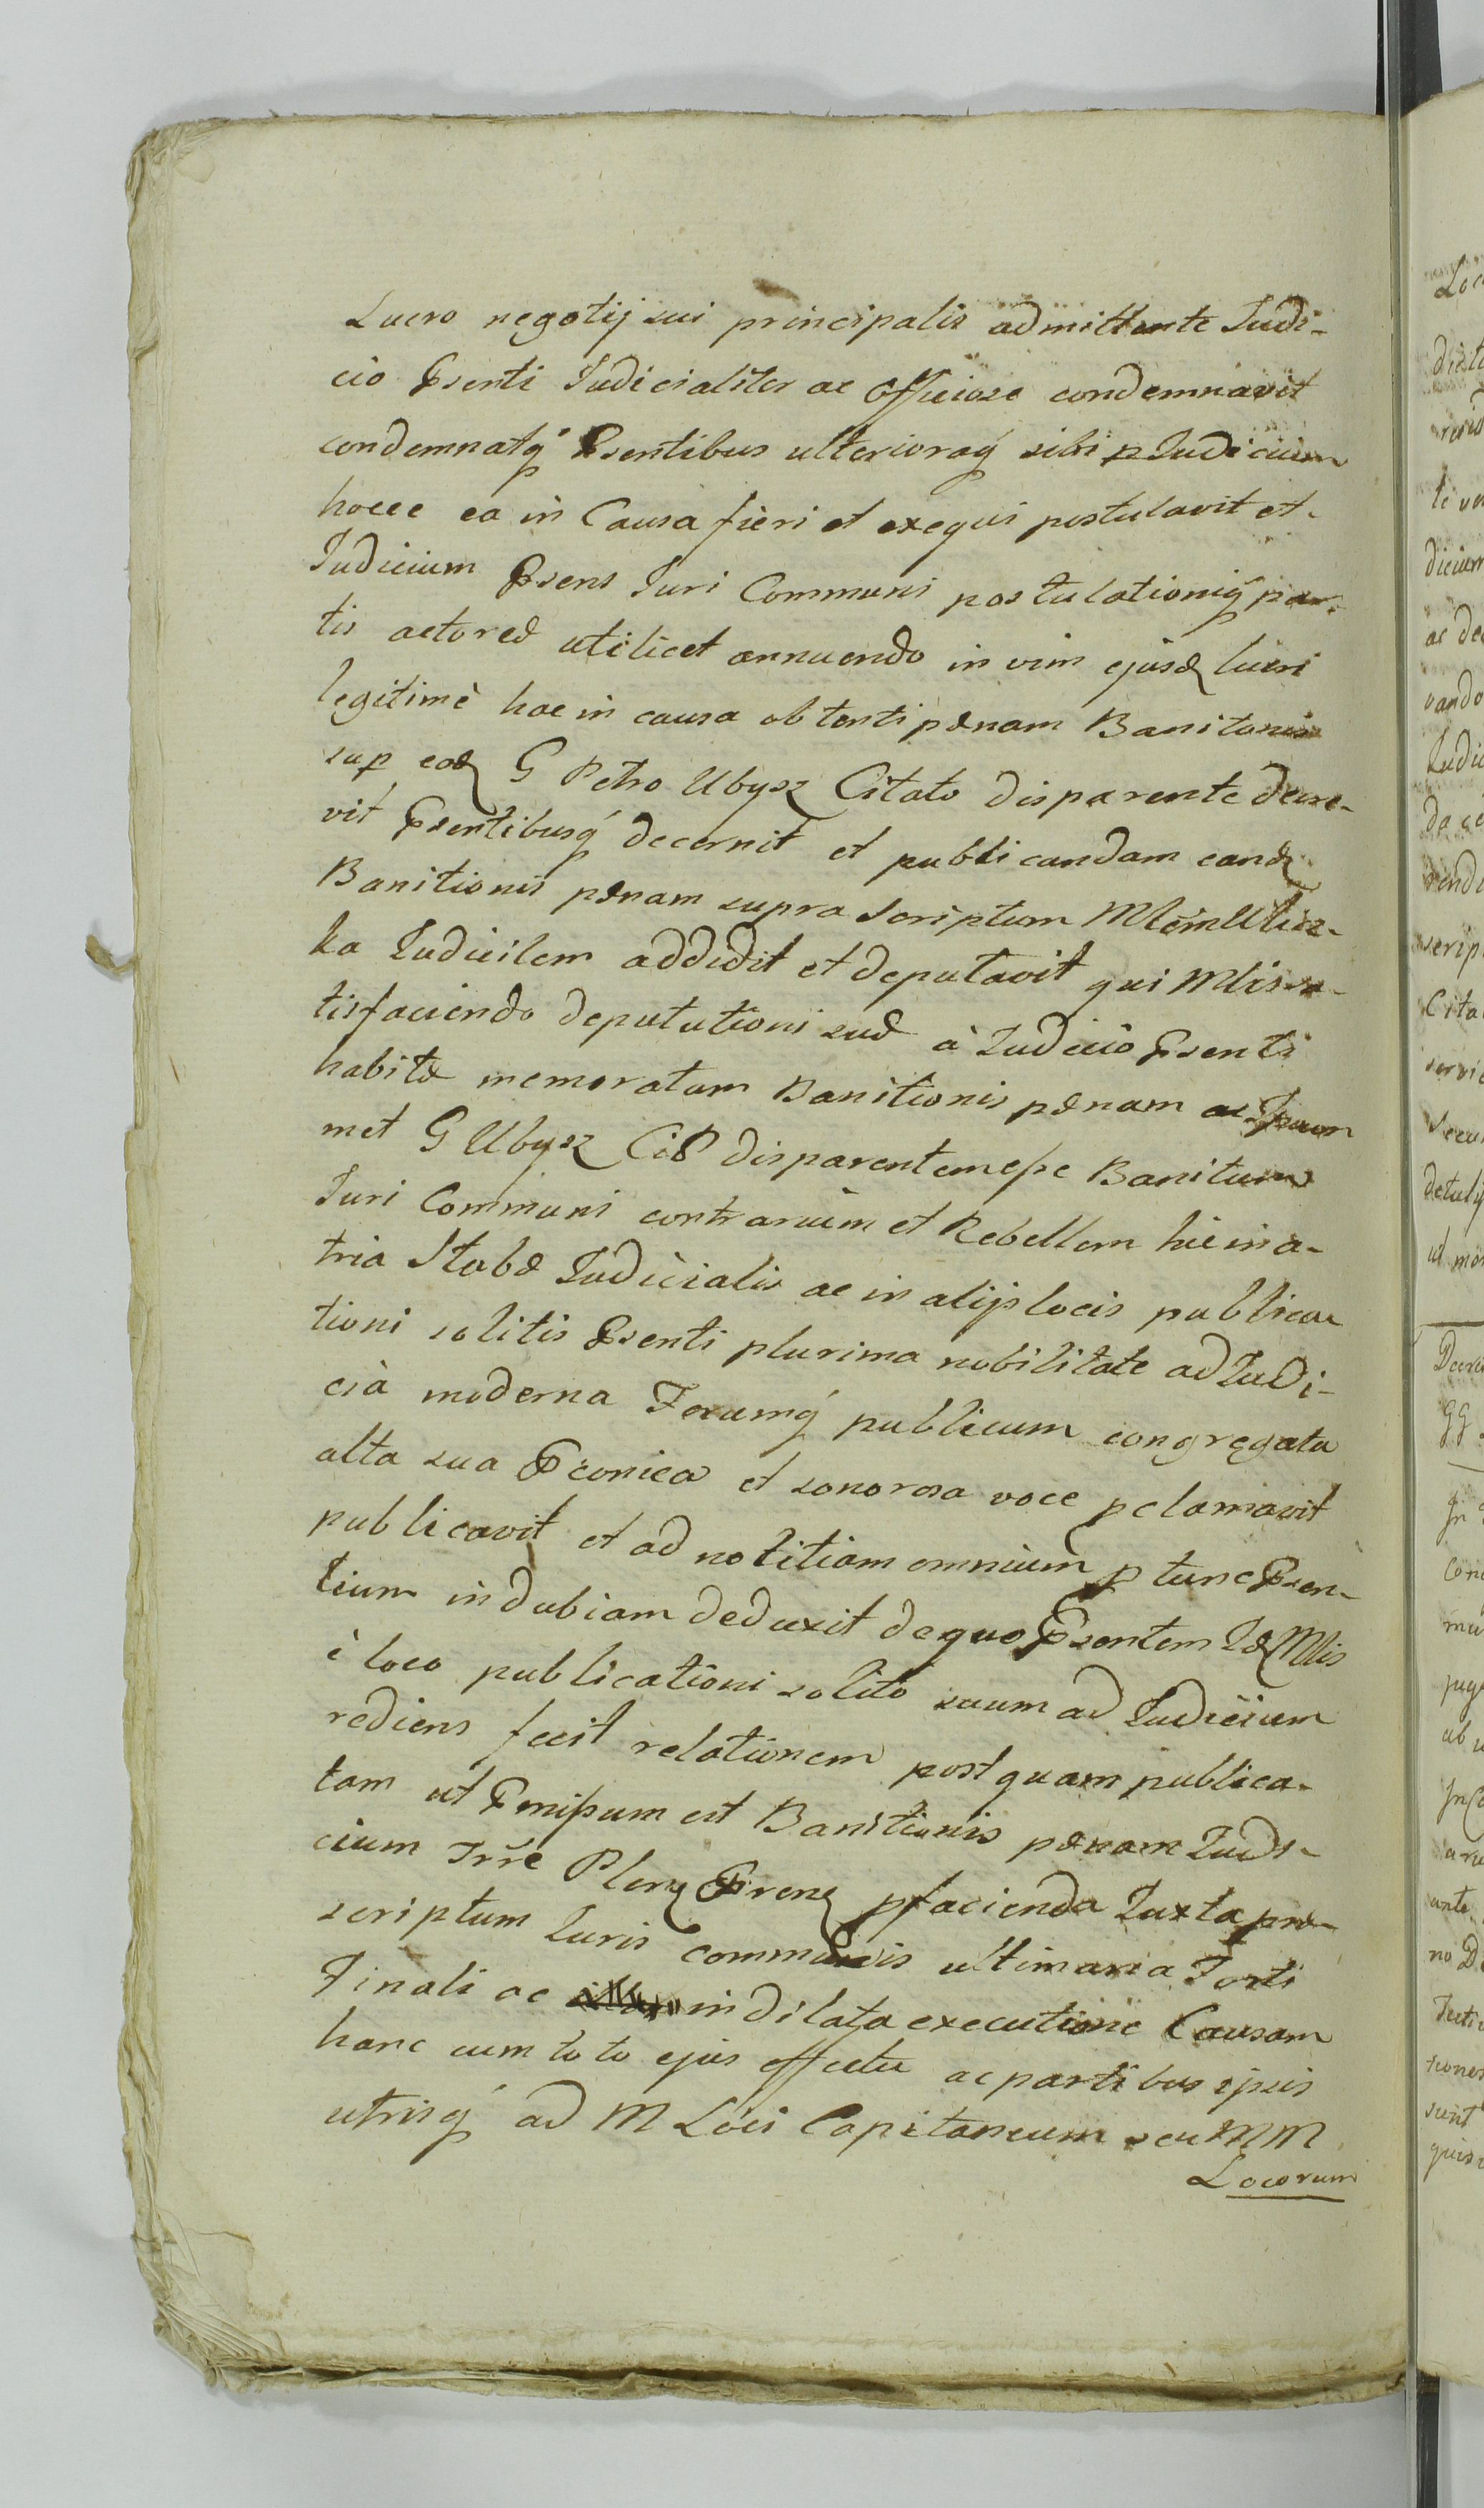 Lucro negotij sui principalis admittente Judi-
cio Psenti Judicialiter ac officiose condemnavit
condemnatq Psentibus ulterioraq sibi p Judicium
hocce ea in Causa fieri et exequi postulavit et
Judicium Psens Juri Communi postulationiq par-
tis actoreæ utilicet annuendo in vim ejusd lucri
legitimè hac in causa obtenti pænam Banitionis
sup eod G Petro Ubysz Citato disparente decre-
vit Psentibusq decernit et publicandam eand
Banitionis pænam supra scriptum Mlem
ka Judicilem addidit et deputavit qui Mlis sa-
tisfaciendo deputationi suæ à Judicio Psenti
habitæ memoratam Banitionis pænam ac Ipsum
met G Ubysz Citt disparentem esse Banitum
Juri Communi contrarium et Rebellem hic in a-
tria Stubæ Judicialis ac in alijs locis publica
tioni solitis Psenti plurima nobilitate ad Judi-
cia moderna Forumq publicum congregata
alta sua Pconica et sonorosa voce pclamavit
publicavit et ad notitiam omnium p tunc Psen-
tium indubiam deduxit de quo Psentem Id Mlis
è loco publicationi solito suum ad Judicium
rediens fecit relationem post quam publica-
tam ut Pmissum est Banitionis pænam Judi-
cium Trre Plen pfacienda Juxta præ-
scriptum Juris communis ultimaria Forti
Finali ac indilata executione Causam
hanc cum toto ejus effectu ac partibus ipsis
utrisq ad M Loci Capitaneum seu MM
Locorum